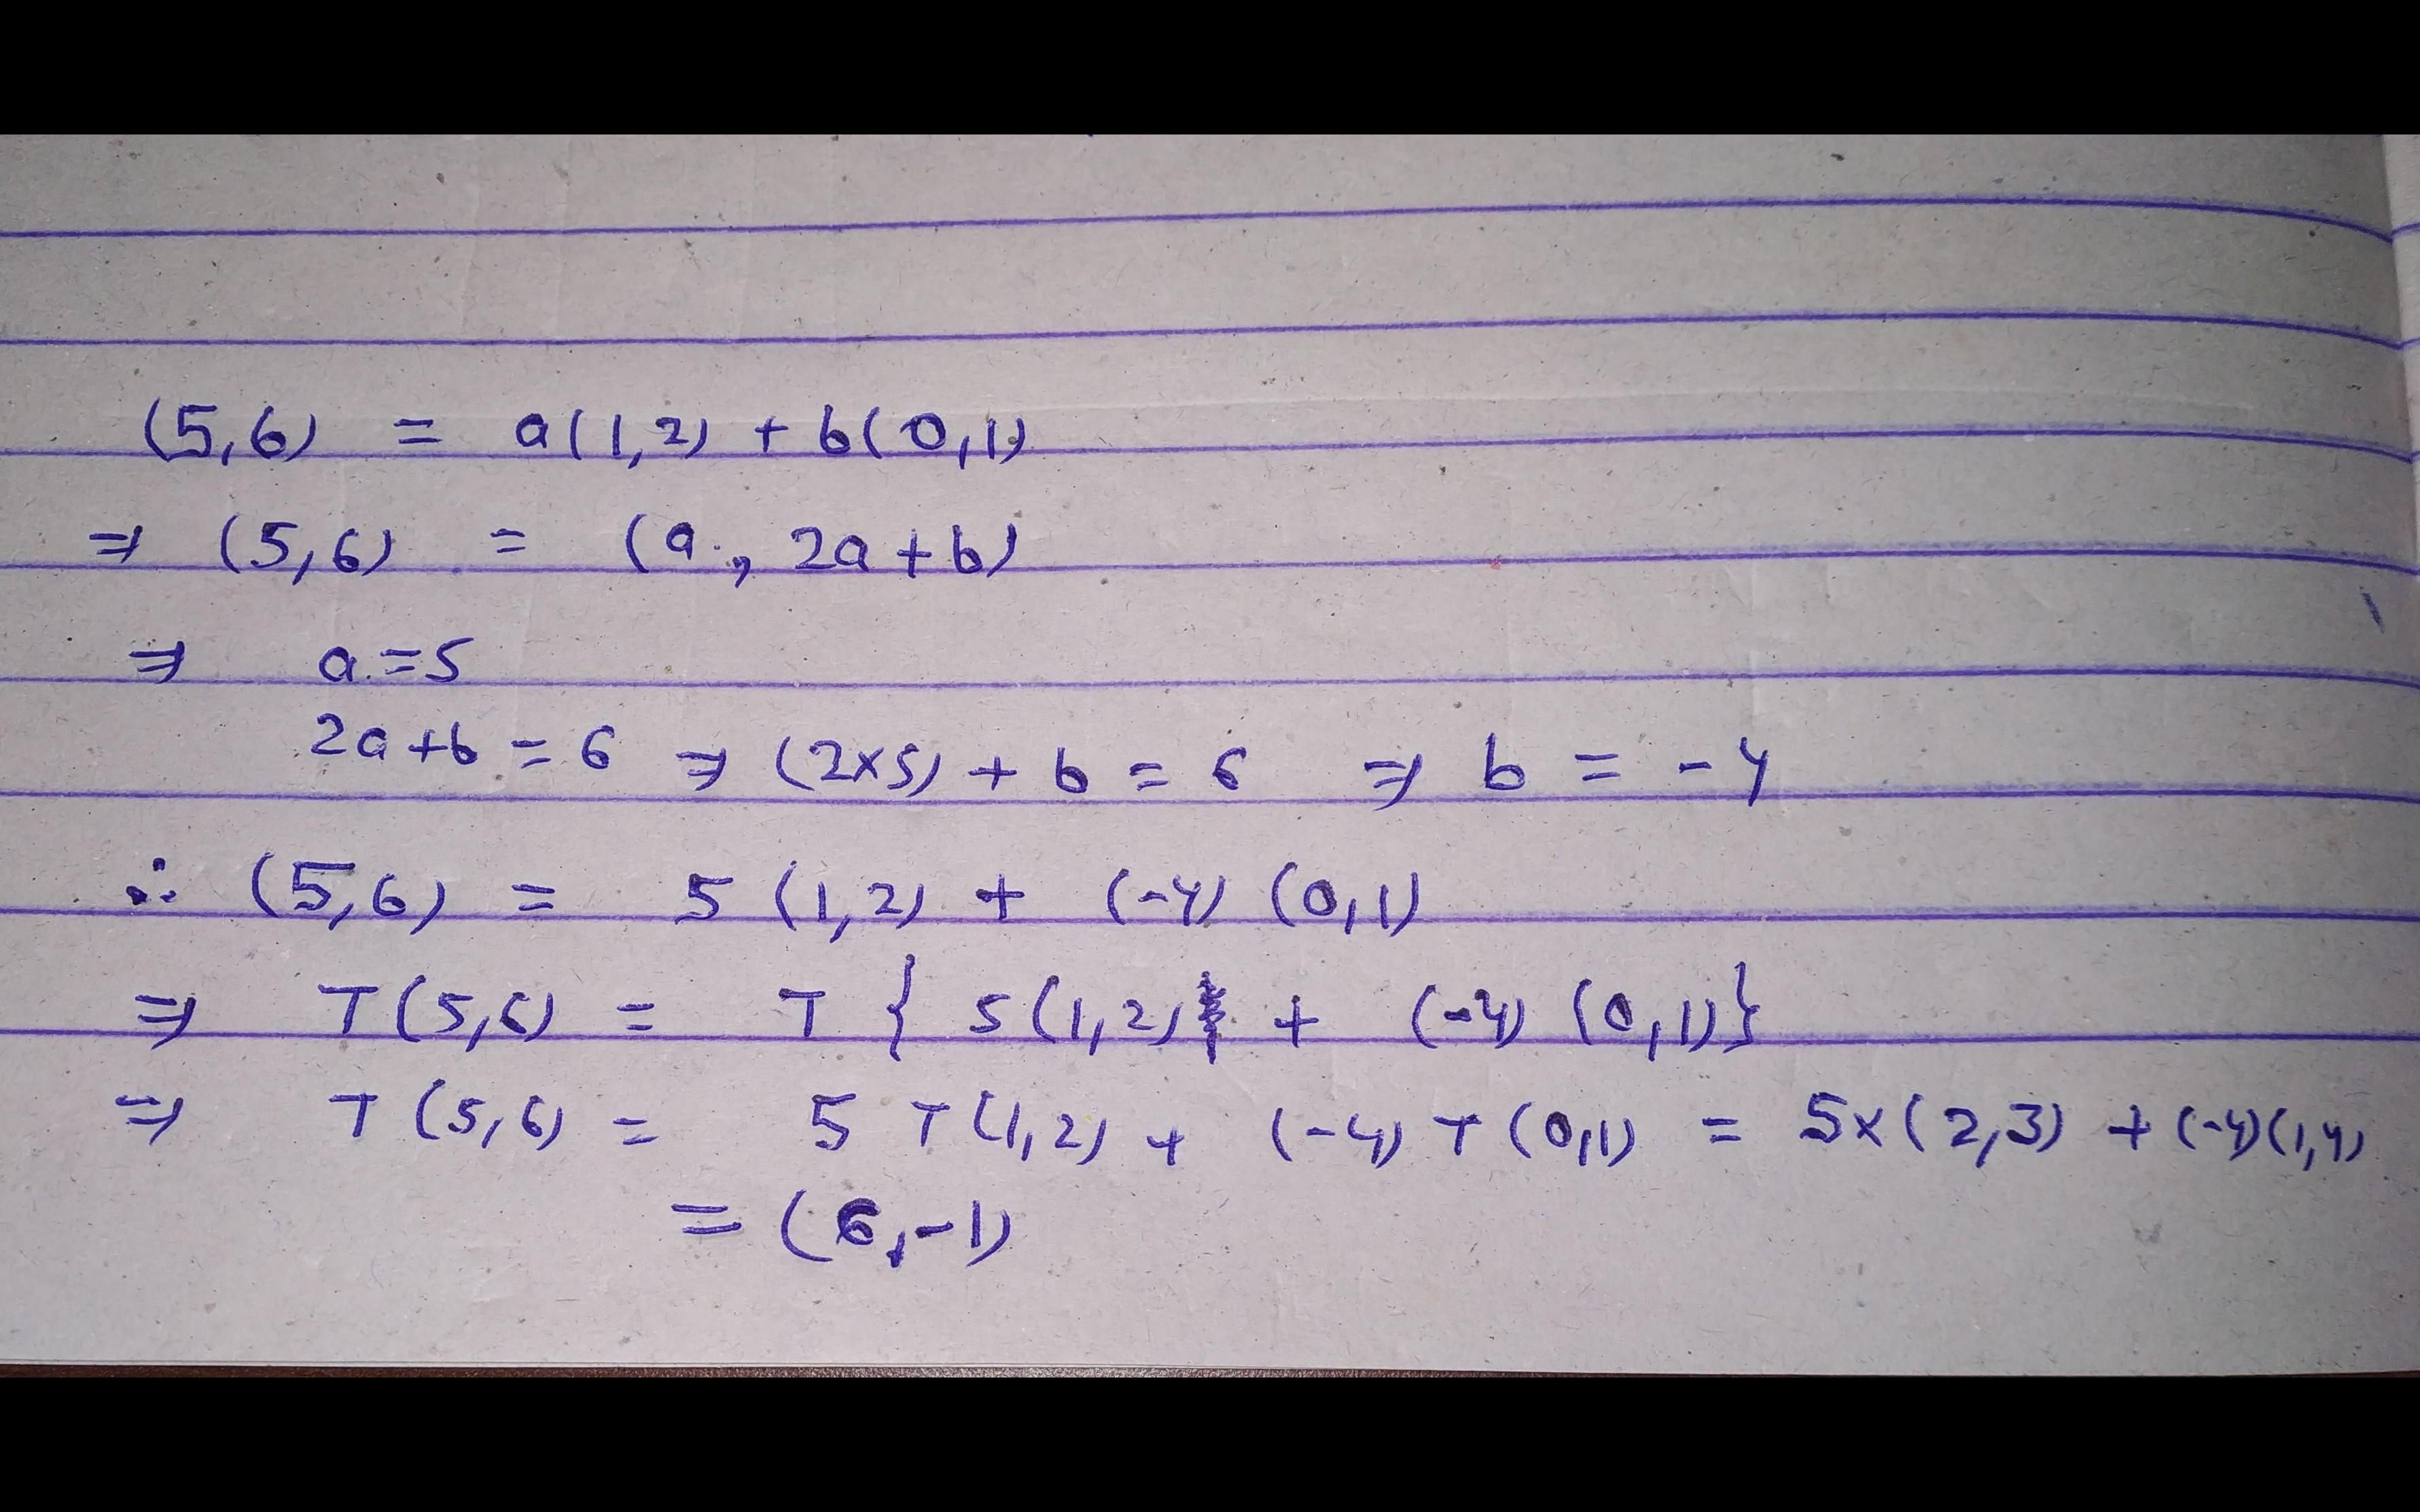 (5,6) = a(1,2) + b(0,1)
⇒ (5,6) = (a, 2a+b)
⇒ a=5
2a+b = 6 ⇒ (2×5) + b = 6 ⇒ b = -4
∴ (5,6) = 5 (1,2) + (-4) (0,1)
⇒ T(5,6) = T { 5(1,2) + (-4) (0,1)}
⇒ T(5,6) = 5 T(1,2) + (-4) T(0,1) = 5×(2,3) + (-4)(1,4)
= (6,-1)